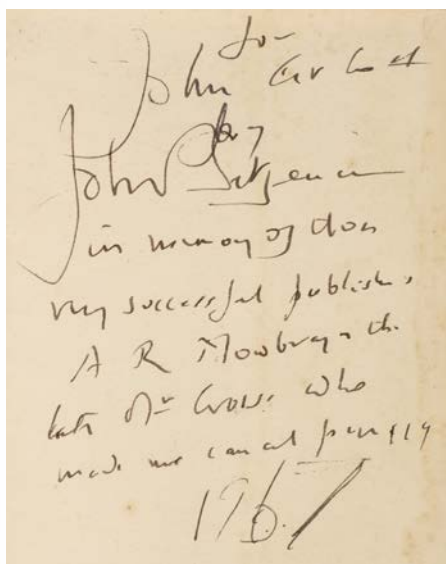 for
John
by
John Betjeman
in memory of those
very successful publishers
A R Mowbray & the
late Mr Cross who
made me cancel
1967